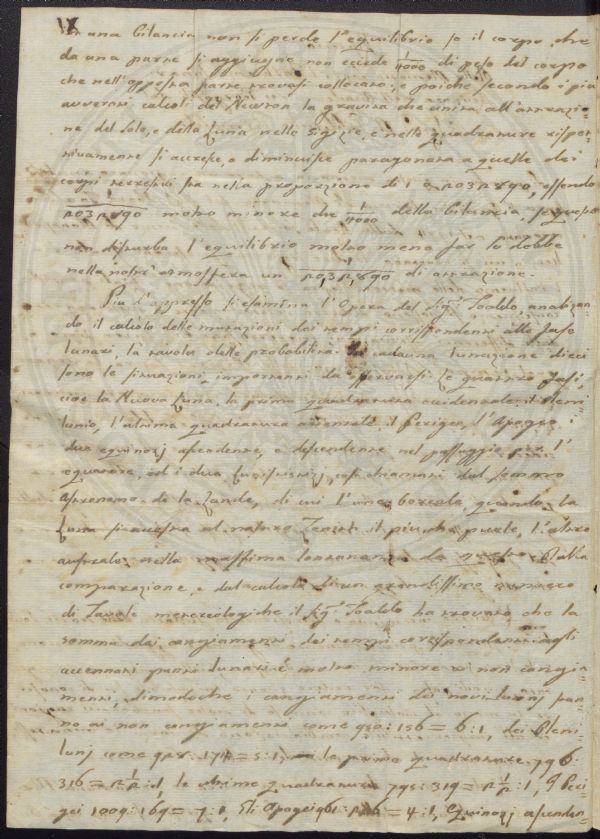 In una bilancia non si perde l'equilibrio se il corpo, che
da una parte si aggiugne non eccede 1/4000 di peso del corpo
che nell'opposta parte trovasi collocato, e poiche secondo i piu
avverati calcoli del Newton la gravita che unita all'attrazio-
ne del Sole, e della Luna nelle sigizie, e nelle quadrature rispet-
tivamente si accresce, o diminuisce paragonata a quella dei
corpi terrestri sta nella proporzione di 1 a 2032890, essendo
2032890 molto minore di 1/4000 della bilancia, se questo
non disturba l'equilibrio molto meno far lo debbe
nella nostr' atmosfera un 1/2032890 di attrazione.
Piu d'appresso si esamina l'Opera del Sig.r Toaldo analizan-
do il calcolo delle mutazioni dei tempi corrispondenti alle fasi
lunari, la tavola delle probabilità. In caduna lunazione dieci
sono le situazioni importanti da osservarsi le quattro fasi,
cioè la Nuova Luna, la prima quadratura occidentale, il Pleni-
lunio, l'ultima quadratura orientale, il Perigeo, l'Apogeo i
due equinozj ascendente, e discendente nel passaggio per l'
equatore, ed i due Lunistizj, così chiamati dal sommo
Astronomo de la Lande, di cui l'uno boreale quando la
Luna si accosta al nostro Zenith il più che puole, l'altro
australe nella massima lontananza da nostro. Dalla
comparazione, e dal calcolo di un grandissimo numero
di Tavole metereologiche il Sig.r Toaldo ha trovato che la
somma dei cangiamenti dei tempi corrispondenti agli
accennati punti lunari è molto minore ai non cangia-
menti, dimodochè i cangiamenti dei novilunj stan-
no ai non cangiamenti come 950:156=6:1, dei Pleni-
lunj come 928:174=5:1, le prime quadrature 796:
316=2 1/2:1, le ultime quadrature 795:319=2 1/2:1, i Peri-
gei 1009:169=7:1, gli Apogei 961:226=4:1, Equinozj ascenden-